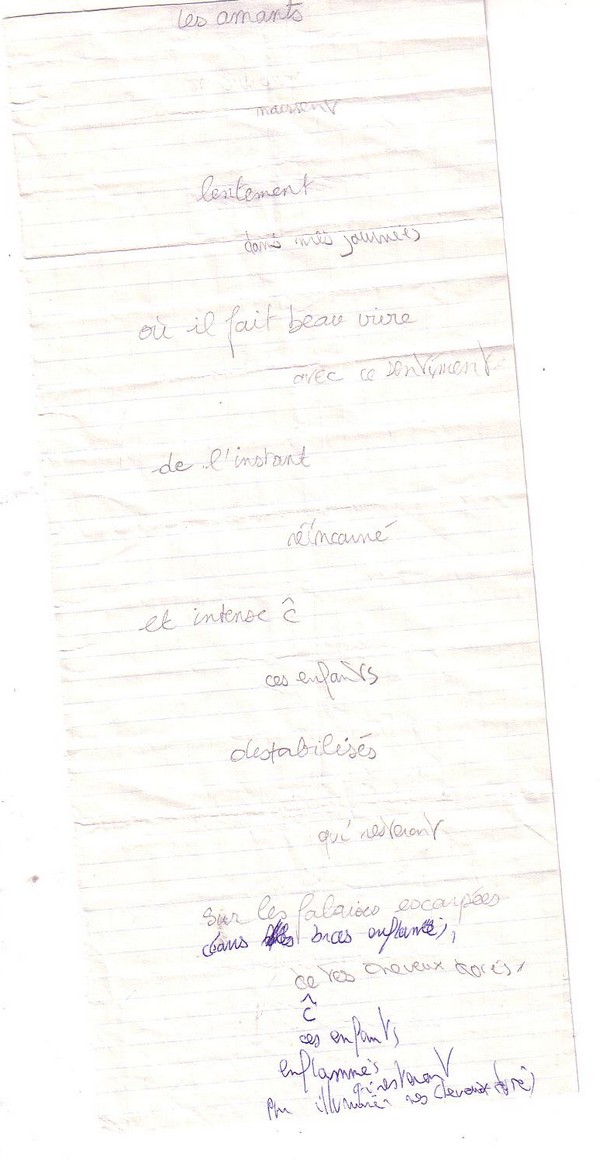 les amants
naissent
lentement
dans mes journées
où il fait beau vivre
avec ce sentiment
de l'instant
réincarné
et intense ĉ
ces enfants
destabilisés
qui resteront
Sur les falaises escarpées
dans enflammés,
de tes cheveux dorés,
ĉ
ces enfants
enflammés
qui resteront
illuminer nos cheveux